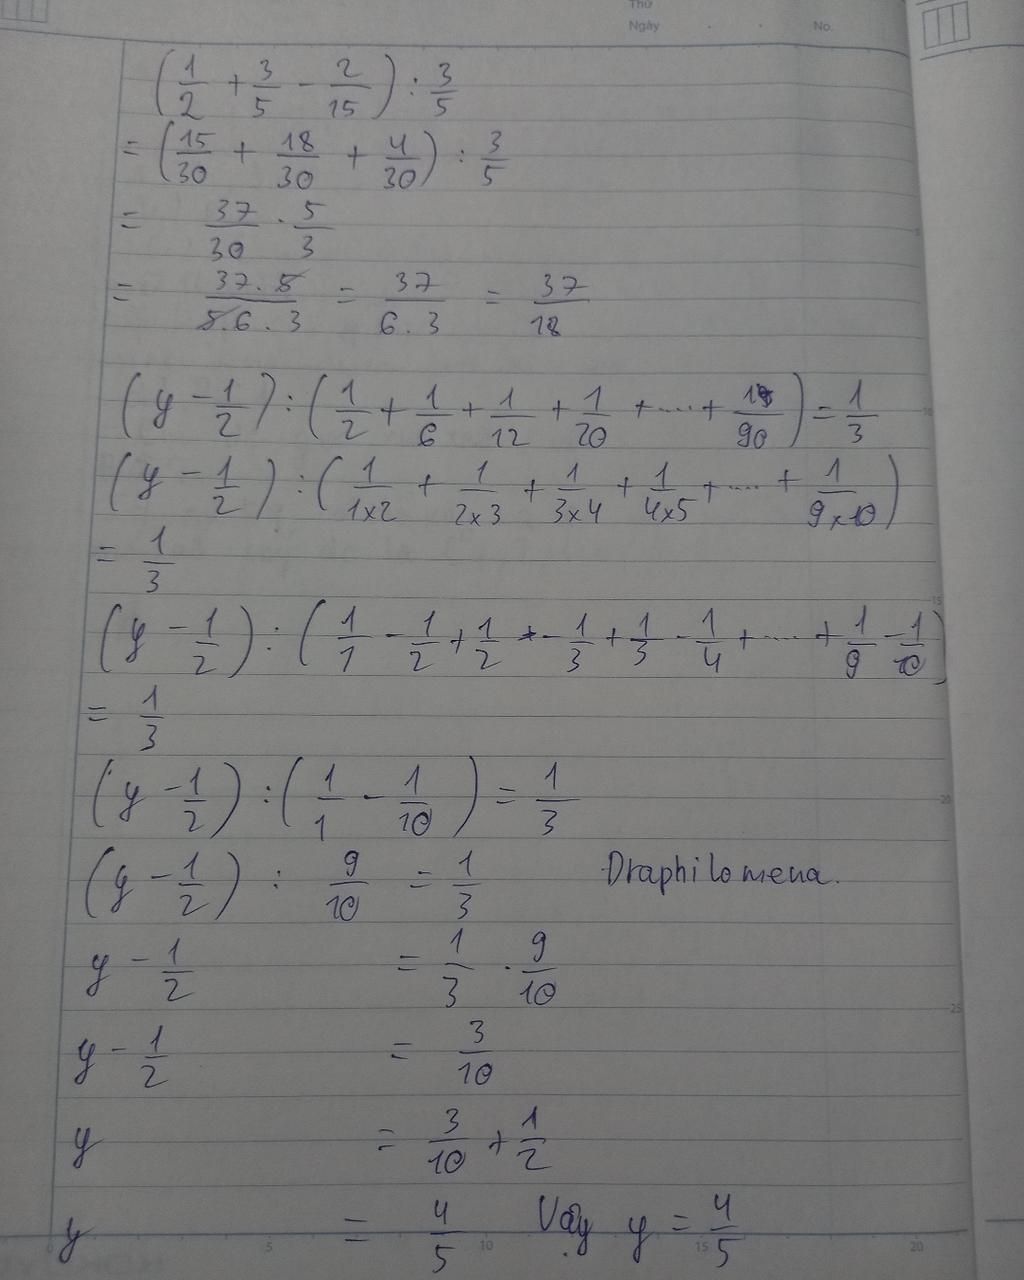 Thứ
Ngày . . No.
(1/2 + 3/5 - 2/15) : 3/5
= (15/30 + 18/30 + 4/30) : 3/5
= 37/30 . 5/3
= 37.5/5.6.3 = 37/6.3 = 37/18
(y - 1/2) : (1/2 + 1/6 + 1/12 + 1/20 + .... + 1/90) = 1/3
(y - 1/2) : (1/1x2 + 1/2x3 + 1/3x4 + 1/4x5 + .... + 1/9x10)
= 1/3
(y - 1/2) : (1/1 - 1/2 + 1/2 - 1/3 + 1/3 - 1/4 + .... + 1/9 - 1/10)
= 1/3
(y - 1/2) : (1/1 - 1/10) = 1/3
(y - 1/2) : 9/10 = 1/3 Draphilomena.
y - 1/2 = 1/3 . 9/10
y - 1/2 = 3/10
y = 3/10 + 1/2
y = 4/5 Vậy y = 4/5
0 5 10 15 20